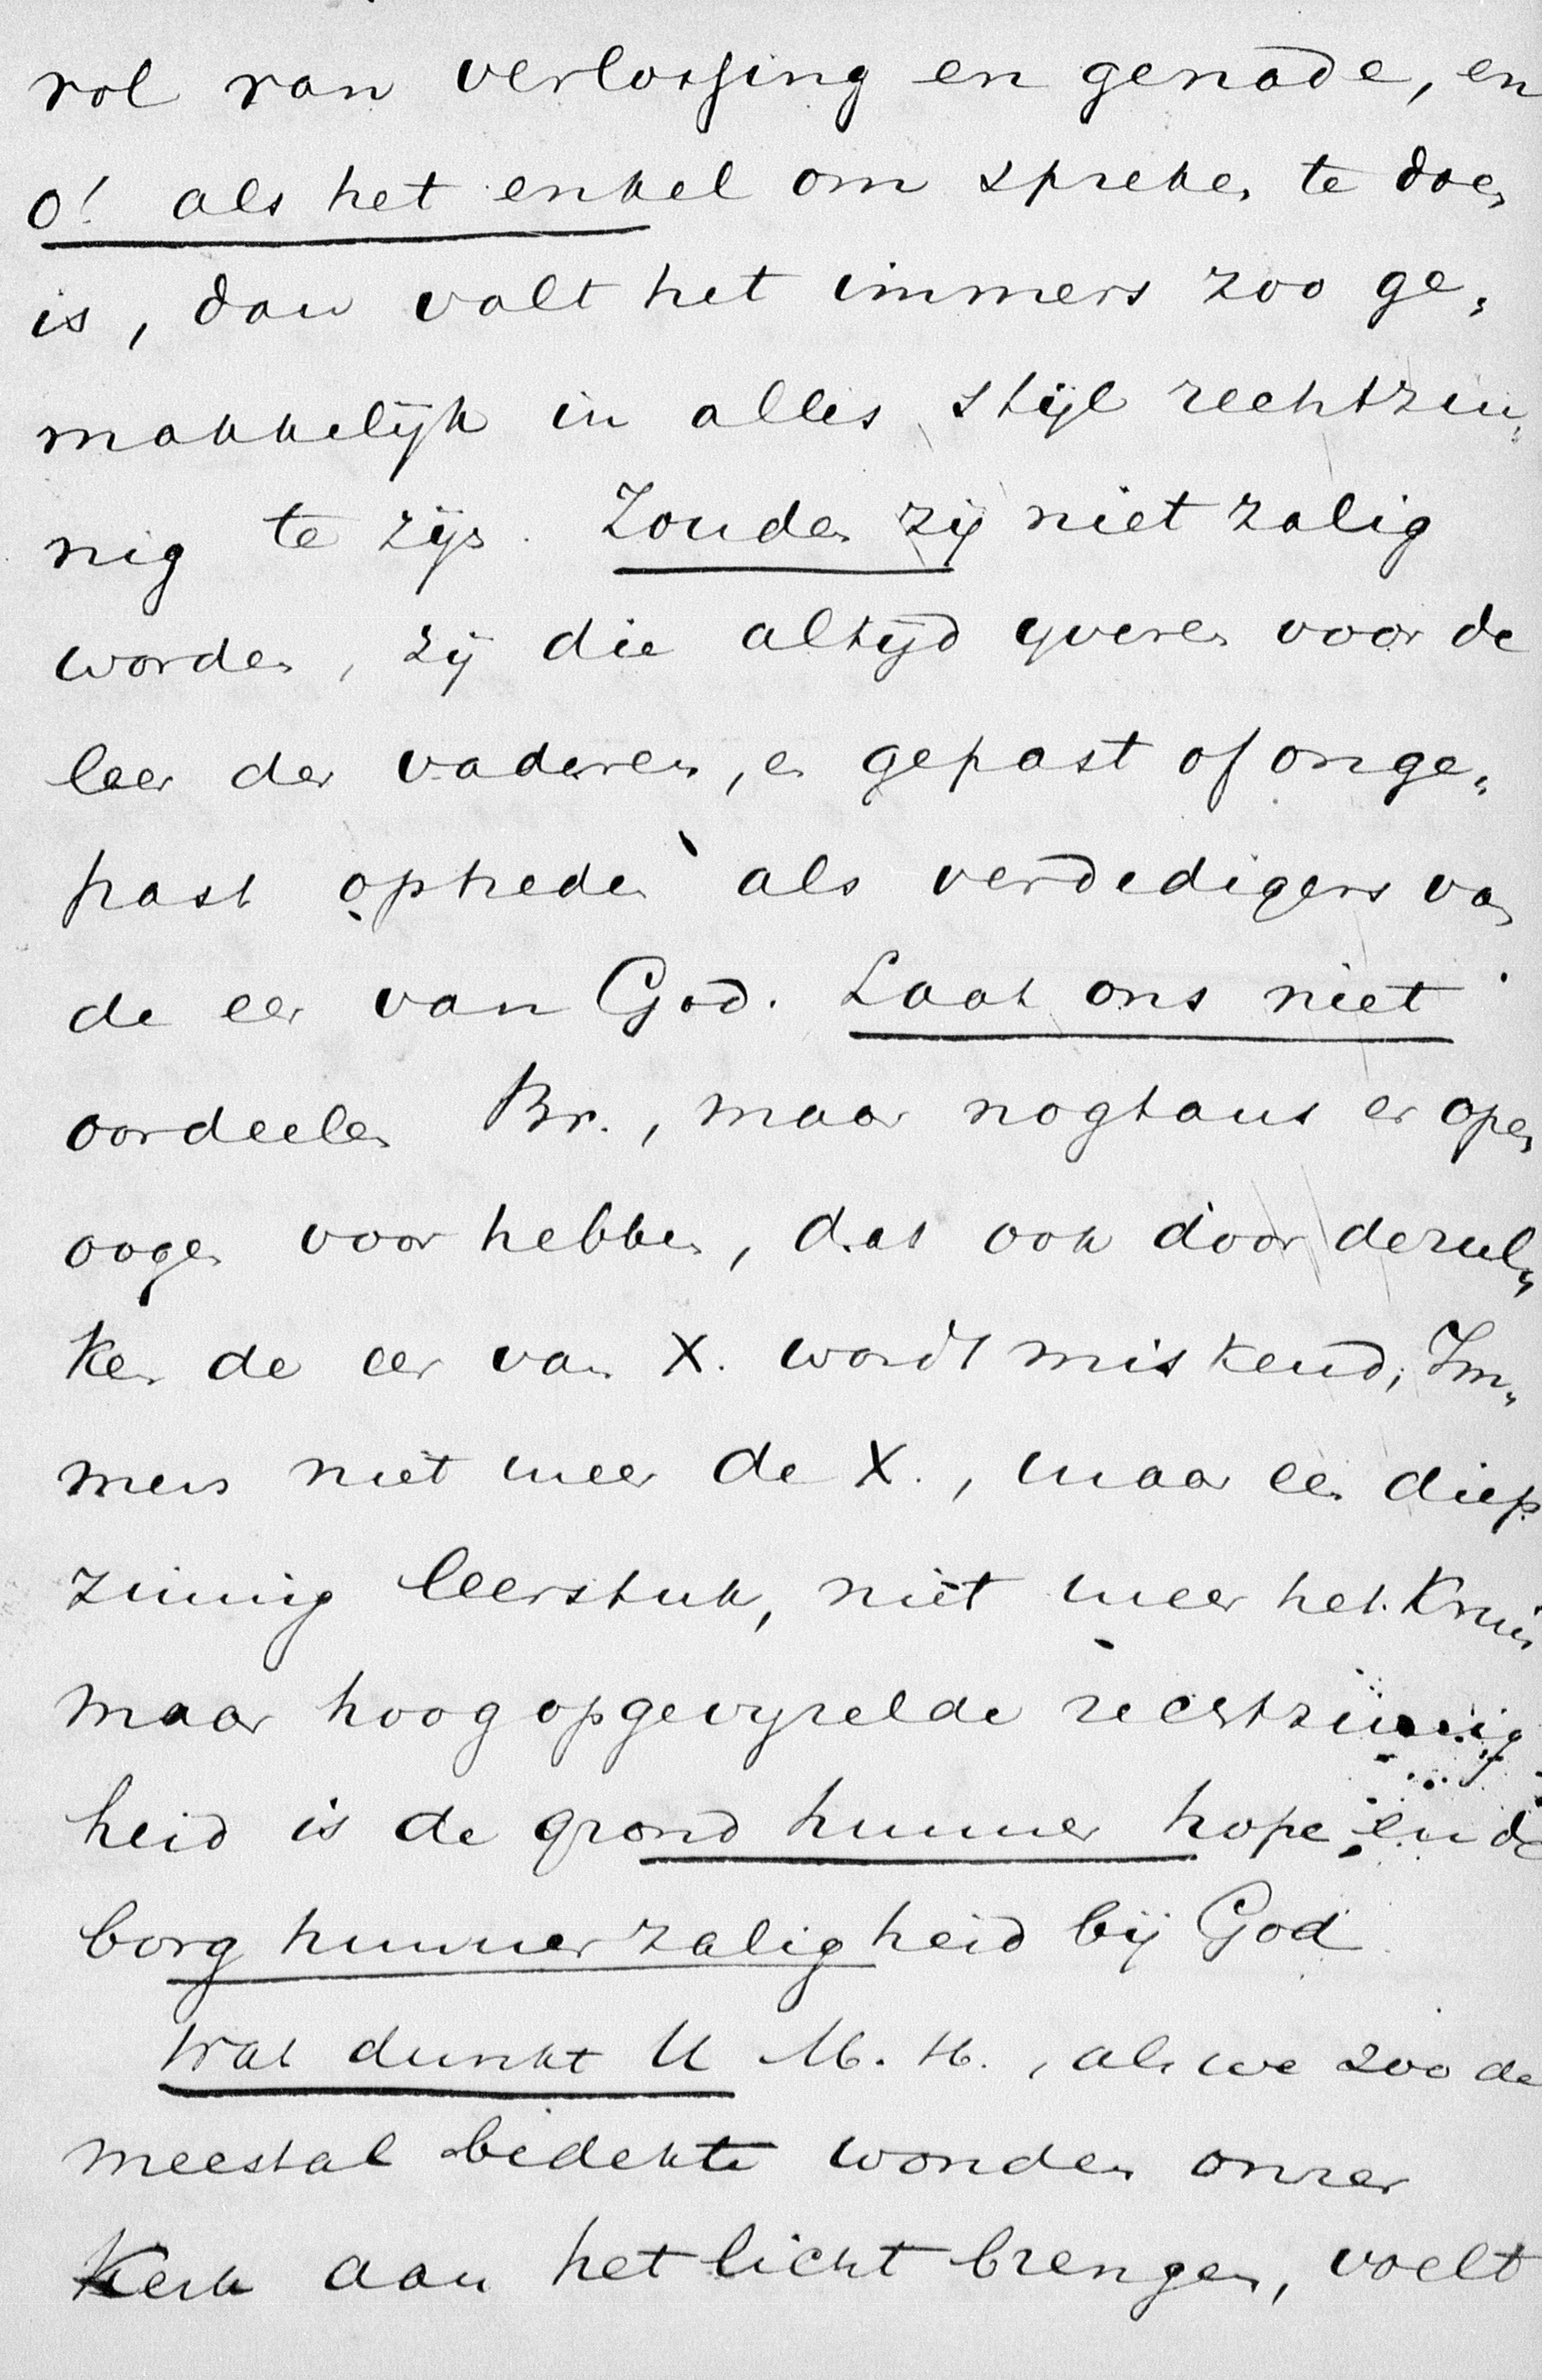 vol van verlossing en genade, en
o! als het enkel om spreken te doen
is, dan valt het immers zoo ge„
makkelijk in alles stijl rechtzin„
nig te zijn. Zouden zij niet zalig
worden, zij die altijd yveren voor de
leer der vaderen, en gepast of onge„
past optreden als verdedigers van
de eer van God. Laat ons niet
oordeelen Br., maar nogtans er open
oogen voor hebben, dat ook door dezul„
ken de eer van X. wordt miskend, Im„
mers niet meer de X., maar een diep
zinnig leerstuk, niet meer het Kruis
maar hoog opgevyzelde rechtzinnig
heid is de grond hunner hope, en de
borg hunner zaligheid bij God.
Wat dunkt U M. H., als we zoo de
meestal bedekte wonden onzer
Kerk aan het licht brengen, voelt